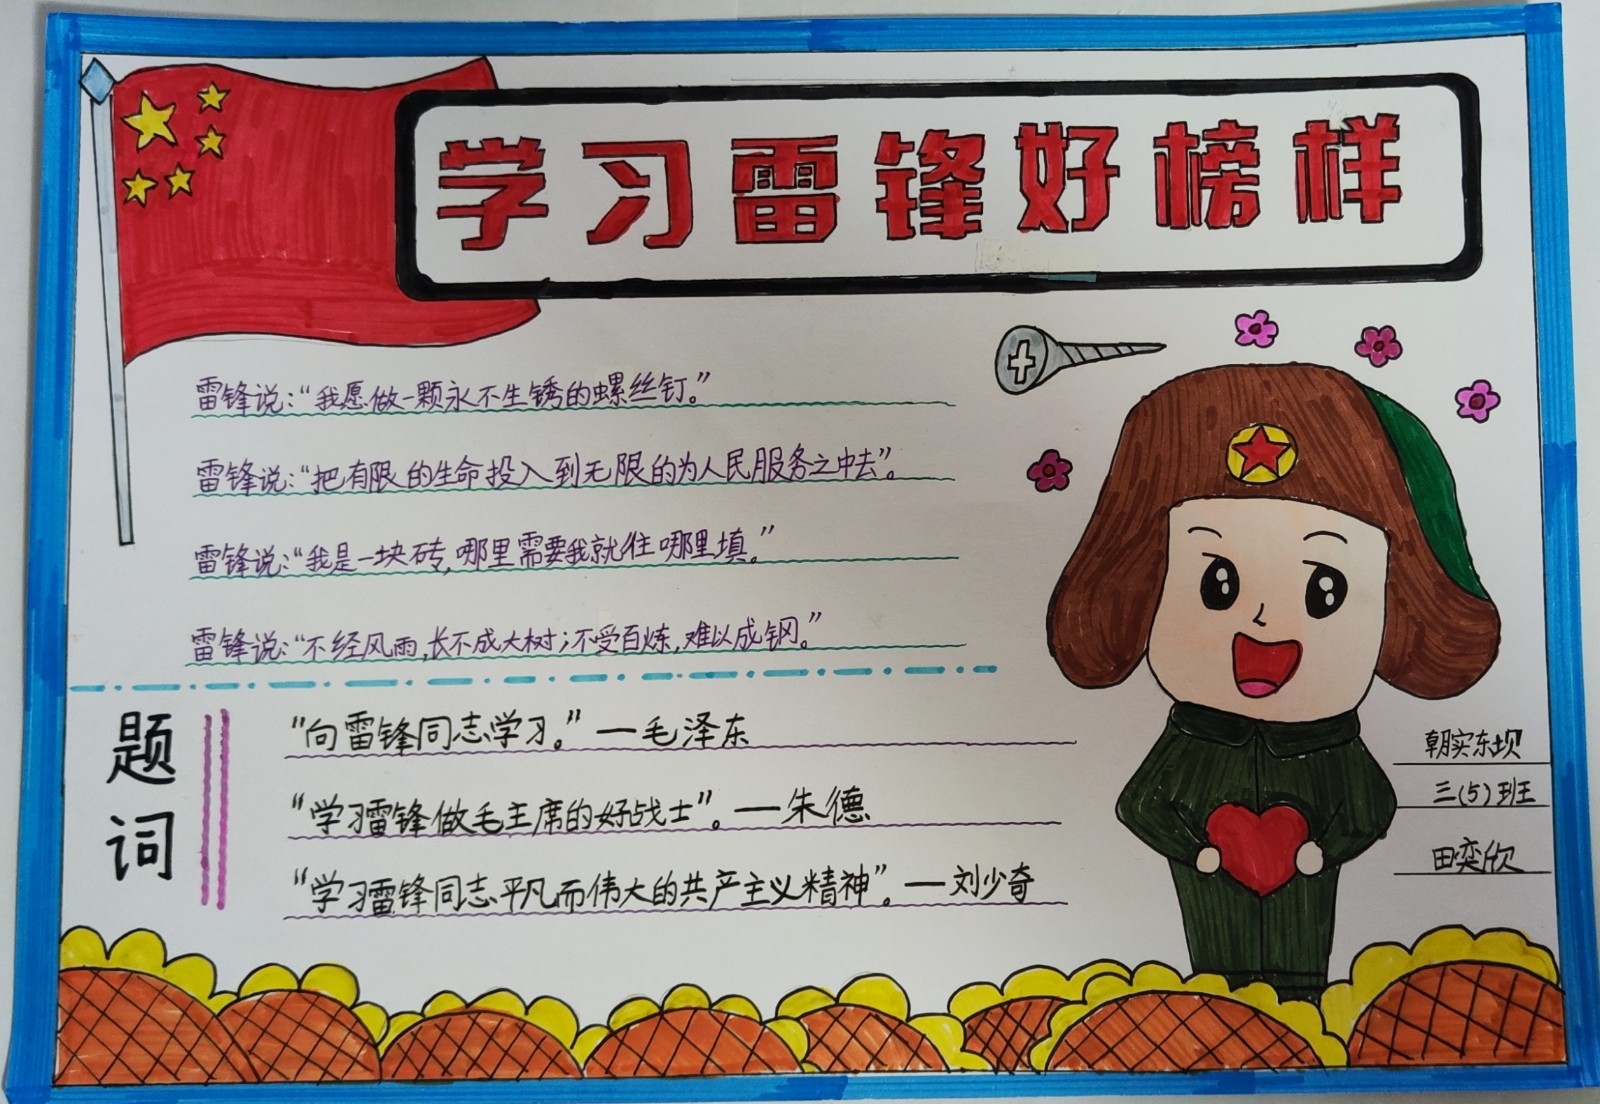 学习雷锋好榜样
雷锋说：“我愿做一颗永不生锈的螺丝钉。”
雷锋说：“把有限的生命投入到无限的为人民服务之中去”。
雷锋说：“我是一块砖，哪里需要我就往哪里填。”
雷锋说：“不经风雨，长不成大树；不受百炼，难以成钢。”
题词
“向雷锋同志学习。”—毛泽东
“学习雷锋做毛主席的好战士”。—朱德
“学习雷锋同志平凡而伟大的共产主义精神”。—刘少奇
朝实东坝
三（5）班
田奕欣